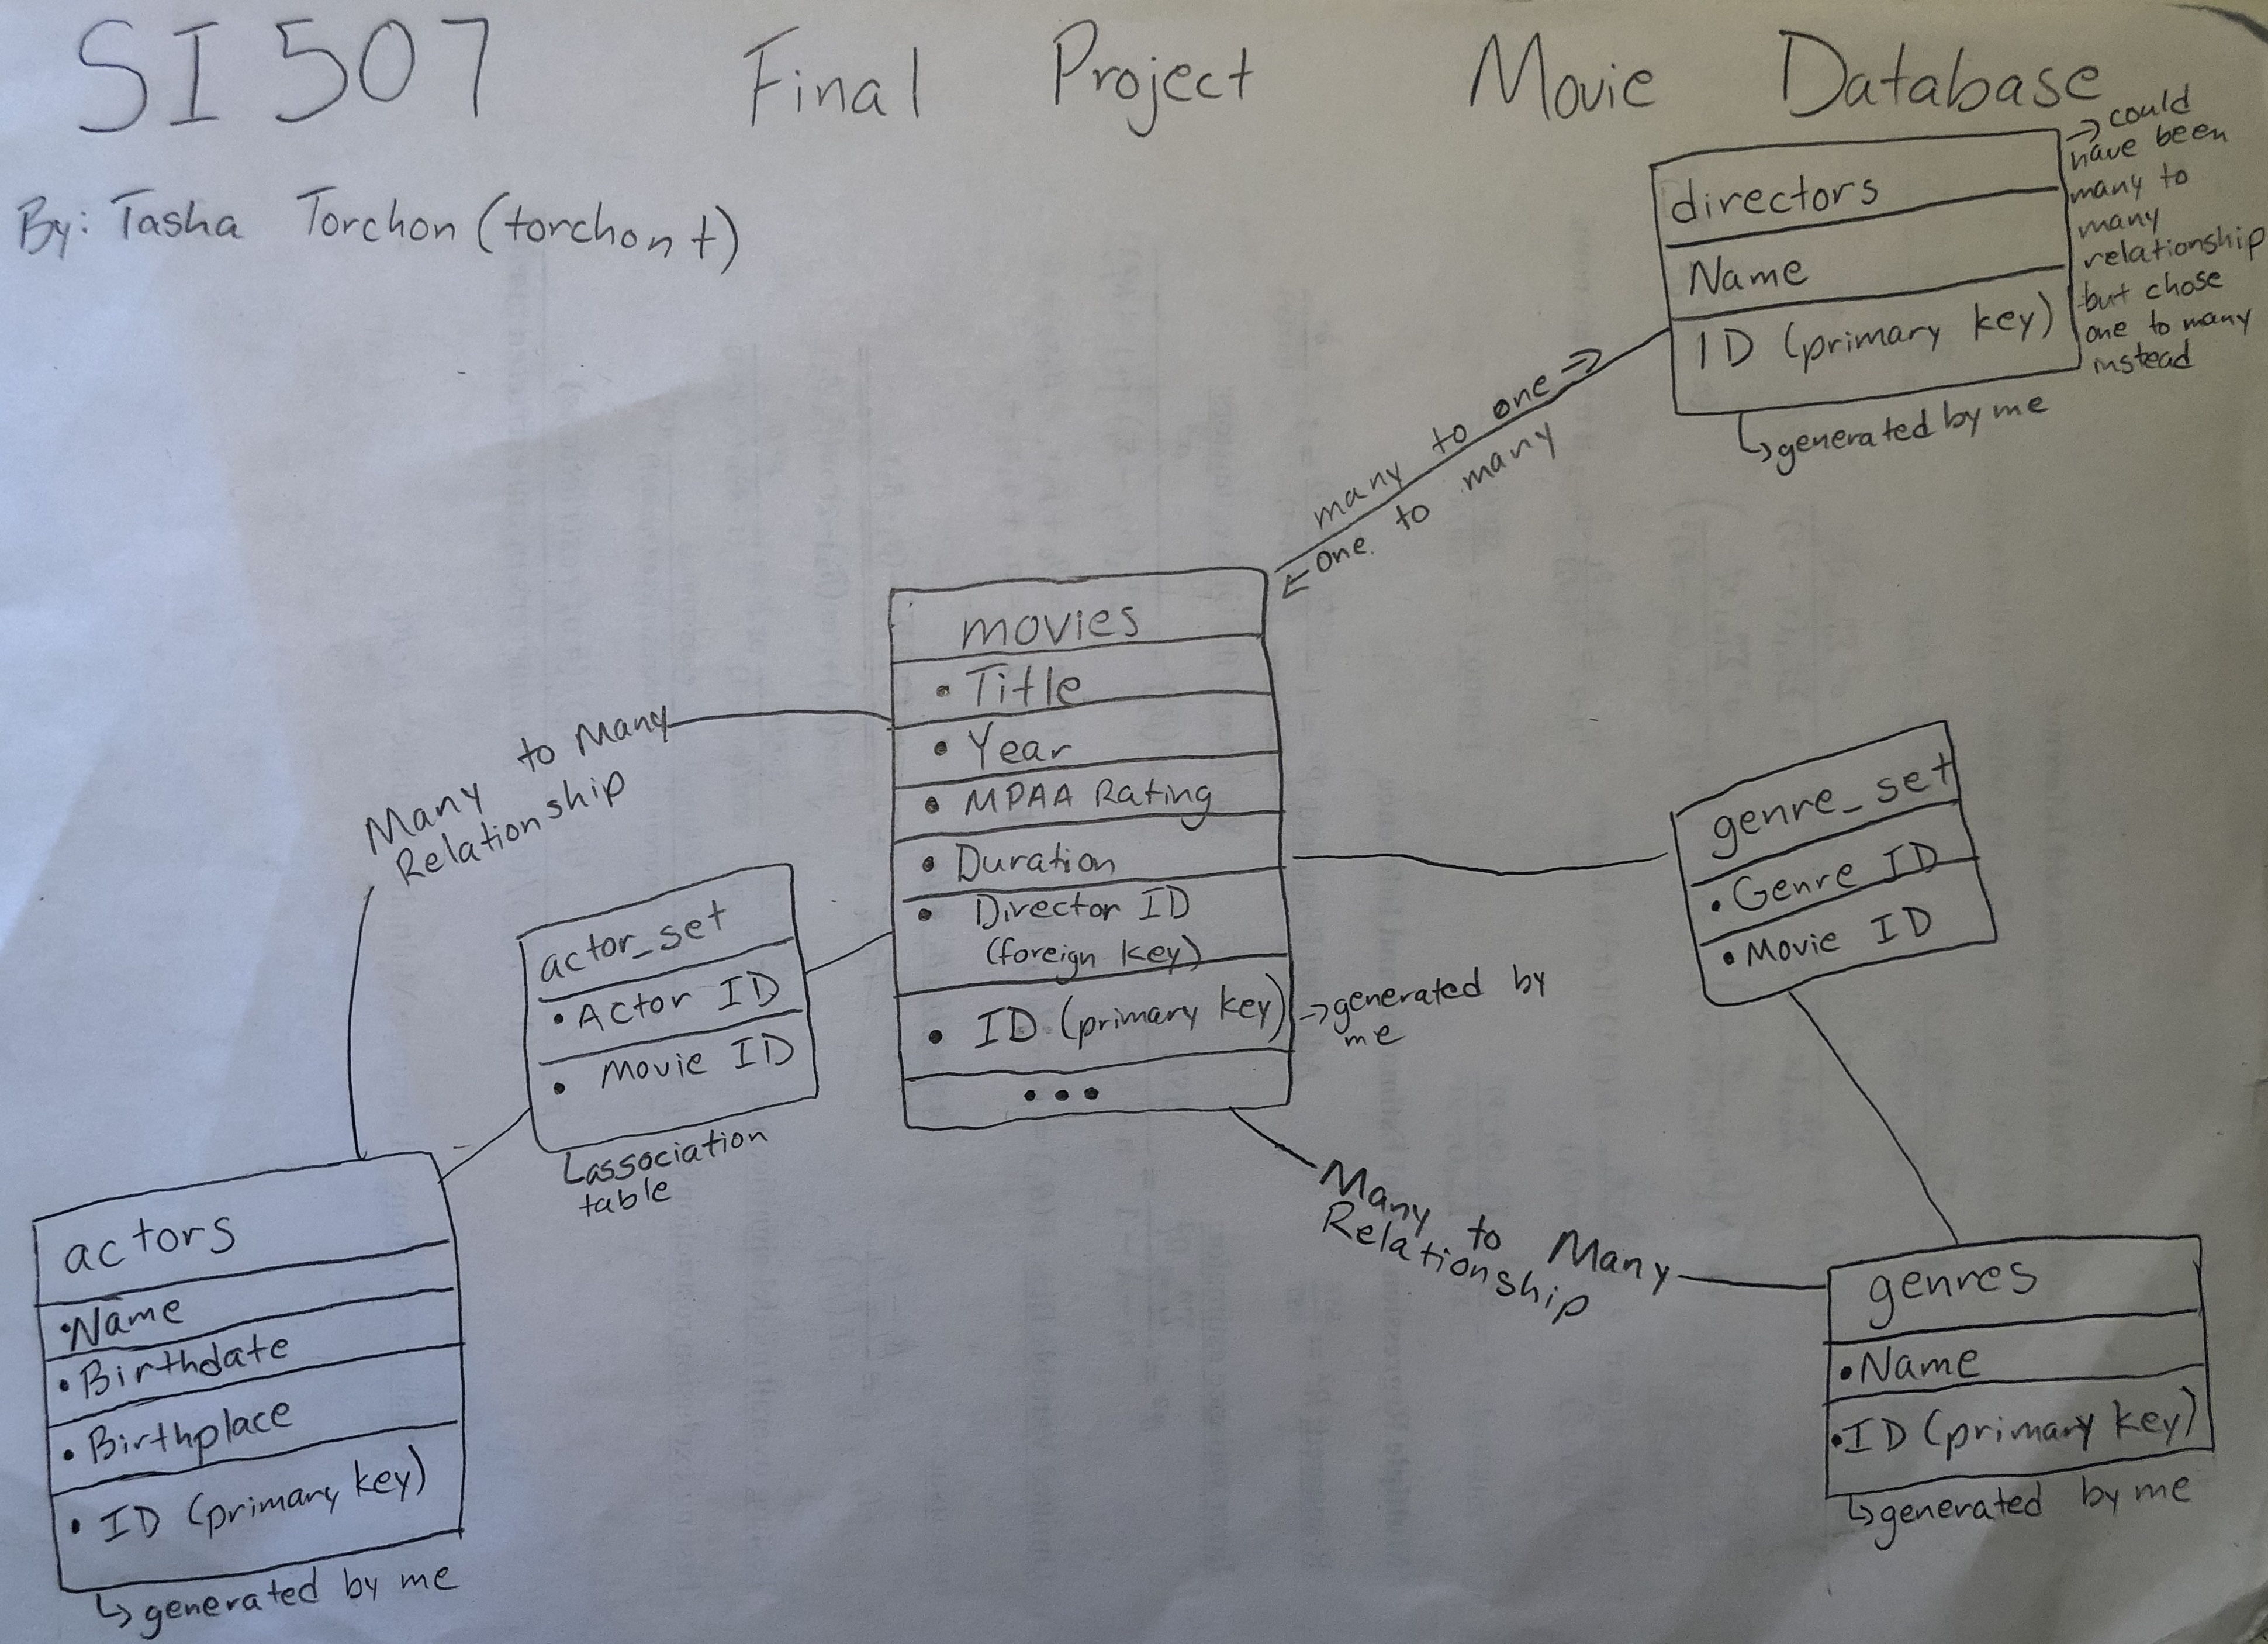 SI 507 Final Project Movie Database
By: Tasha Torchon (torchont)
directors
Name
ID (primary key)
↳ generated by me
→ could
have been
many to
many
relationship
but chose
one to many
instead
many to one →
← one to many
movies
• Title
• Year
• MPAA Rating
• Duration
• Director ID
(foreign key)
• ID (primary key)
• • •
→ generated by
me
Many to Many
Relationship
actor_set
• Actor ID
• Movie ID
↳ association
table
actors
• Name
• Birthdate
• Birthplace
• ID (primary key)
↳ generated by me
genre_set
• Genre ID
• Movie ID
Many to Many
Relationship
genres
• Name
• ID (primary key)
↳ generated by me